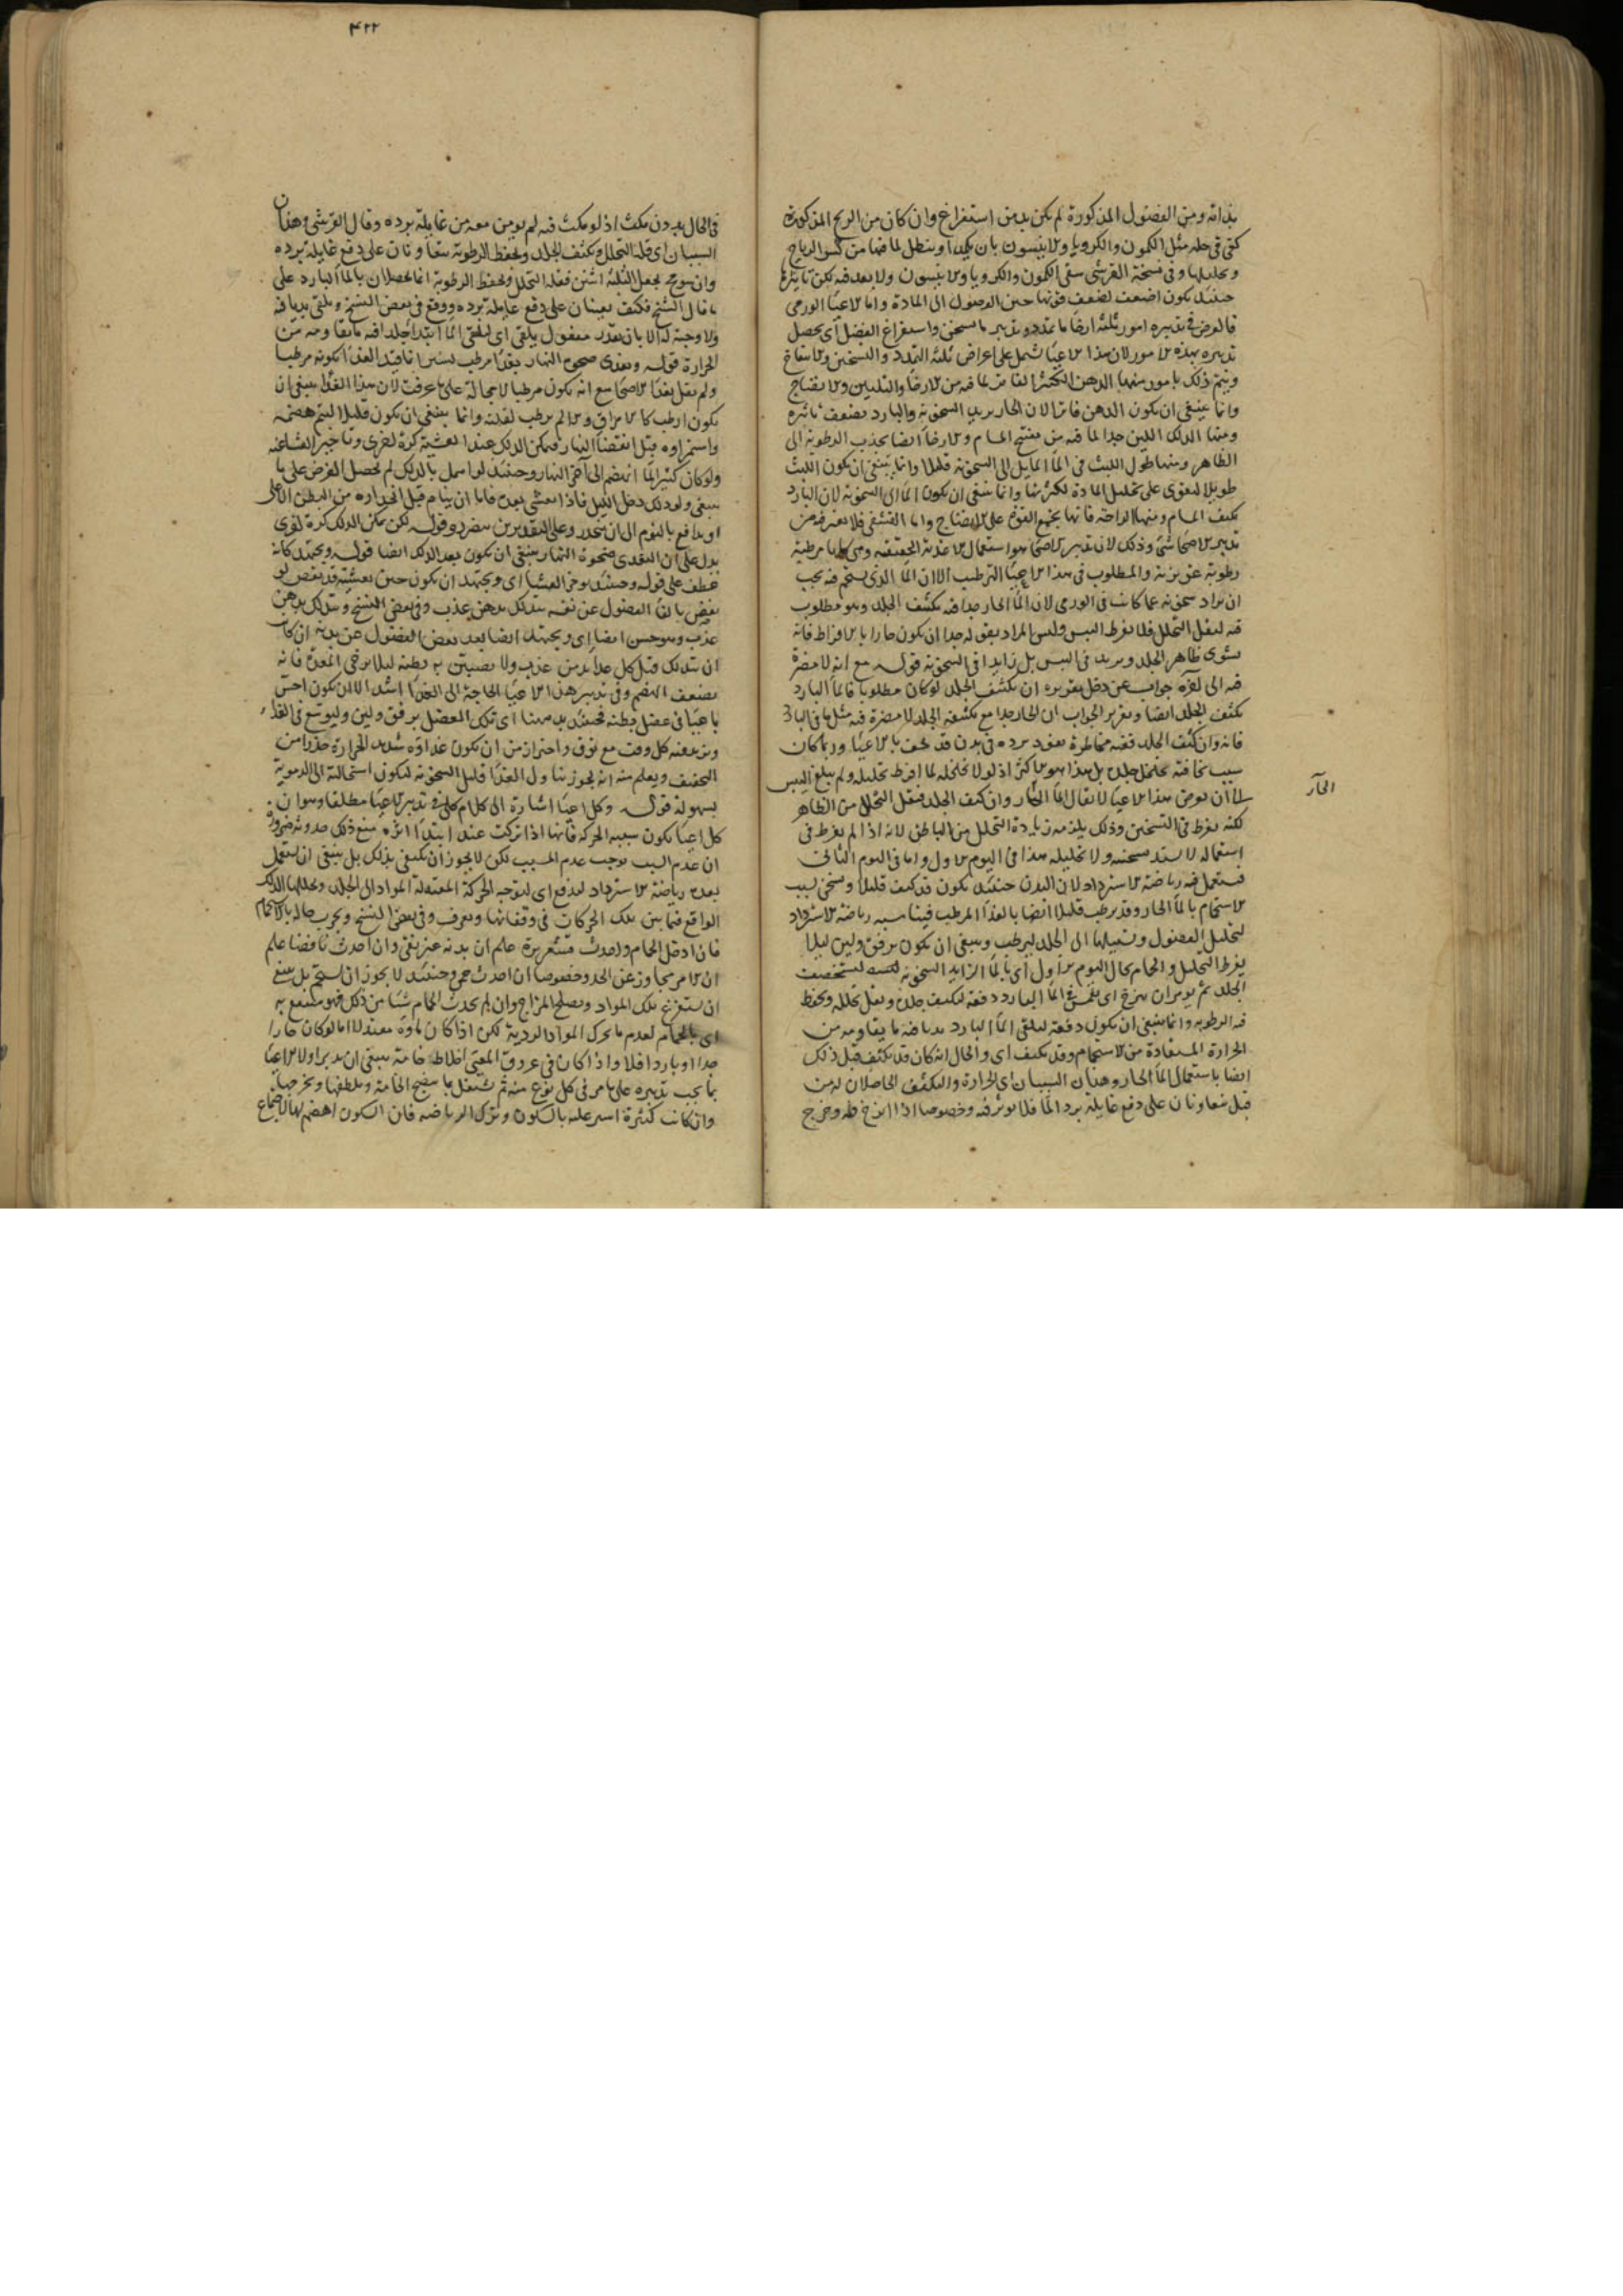 بذاته ومن الفضول المذكورة لم يكن بد من استفراغ وان كان من الريح المذكورة
كفى فى حله مثل الكمون والكرويا والانيسون بان
وتحليلها وفى نسخة القرشى سقى الكمون والكرويا والانيسون ولا بعد فيه لكن تاثيرها
حينئذ يكون اضعف لضعف قوتها حين الوصول الى المادة واما الاعيا الورمى
فالغرض فى تدبيره امور ثلثة ارخا ما تمدد وتبريد ما سخن واستفراغ الفضل اى يحصل
تدبيره بهذه الامور لان هذا الاعيا يشمل على اعراض ثلثة التمدد والتسخين والانتفاخ
ويتم ذلك بامور منها الدهن الكثير الفاتر لما فيه من الارخا والتليين والانضاج
وانما ينبغى ان يكون الدهن فاترا لان الحار يزيد السخونة والبارد يضعف تاثيره
ومنها الدلك اللين جدا لما فيه من تفتيح المسام والارخا ايضا يجذب الرطوبة الى
الظاهر ومنها طول اللبث فى الما المايل الى السخونة قليلا وانما ينبغى ان يكون اللبث
طويلا ليقوى على تحليل المادة لكثرتها وانما ينبغى ان يكون الما الى السخونة لان البارد
يكثف المسام ومنها الراحة فانها تجمع القوة على الانضاج واما القشفى فلا يغير فيه من
تدبير الاصحا شى وذلك لان تدبير الاصحا هو استعمال الاغذية الخفيفة وهى كلها مرطبة
رطوبة غريزية والمطلوب فى هذا الاعيا الترطيب الا ان الما الذى يستحم فيه يجب
ان يزاد سخونة عما كانت فى الورمى لان الما الحار جدا فيه تكثيف الجلد وهو مطلوب
فيه ليقل التحلل فلا يفرط اليبس وليس المراد بقوله جدا ان يكون حارا بالافراط فانه
يشوى ظاهر الجلد ويزيد فى اليبس بل زايدا فى السخونة قوله مع انه لا مضرة
فيه الى اخره جواب عن دخل تقريره ان تكثيف الجلد لو كان مطلوبا فالما البارد
يكثف الجلد ايضا وتقرير الجواب ان الحار جدا مع تكثيفه الجلد لا مضرة فيه مثل ما فى البارد
فانه وان كثف الجلد ففيه مخاطرة نفوذ برده فى بدن قد نحف بالاعيا وربما كان
سبب نحافته تخلخل جلده بل هذا هو الاكثر اذ لولا تخلخله لما افرط تحليله ولم يبلغ اليبس
الى ان يعرض هذا الاعيا لا يقال الما الحار وان كثف الجلد فيقل التحلل من الظاهر
الحار
لكنه يفرط فى التسخين وذلك يلزمه زيادة التحلل من الباطن لانه اذا لم يفرط فى
استعماله لا يشتد سخنه ولا تحليله هذا فى اليوم الاول واما فى اليوم الثانى
فيستعمل فيه رياضة الاسترداد لان البدن حينئذ يكون قد كثف قليلا وسخن بسبب
الاستحمام بالما الحار وقد يرطب قليلا ايضا بالغذا المرطب فيناسبه رياضة الاسترداد
لتحليل الفضول وتسييلها الى الجلد ليرطب وينبغى ان يكون برفق ولين ليلا
يفرط التحليل والحمام بحال اليوم الاول اى بالما الزايد السخونة
الجلد ثم يومر ان يزج اى ينغمس فى الما البارد دفعة ليكثف جلده ويقل تحلله ويحفظ
فيه الرطوبة وانما ينبغى ان يكون دفعة ليلقى الما البارد بدنا فيه ما يقاومه من
الحرارة المستفادة من الاستحمام وقد تكثف اى والحال انه كان قد تكثف قبل ذلك
ايضا باستعمال الما الحار وهذان السببان اى الحرارة والتكثف الحاصلان له من
قبل يتعاونان على دفع غايلة برد الما فلا يوثر فيه وخصوصا اذا انزج فيه وخرج
٤٢٢
فى الحال بدون مكث اذ لو مكث فيه لم يومن معه من غايلة برده وقال القرشى وهذان
السببان اى قلة التحلل وتكثف الجلد وتحفظ الرطوبة يتعاونان على دفع غايلة برده
وان صح بجعل الثلثة اثنين فقلة التحلل وتحفظ الرطوبة انما يحصلان بالما البارد على
ما قال الشيخ فكيف يعينان على دفع غايلة برده ووقع فى بعض النسخ ويلقى بدنا فيه
ولا وجه له الا بان يقدر مفعول يلقى اى ليلقى الما البارد جلدا فيه ما يقاومه من
الحرارة قوله ويغذى ضحوة النهار بغذا مرطب يسير اما قيد الغذا بكونه مرطبا
ولم يقل بغذا الاصحا مع انه يكون مرطبا لا محالة على ما عرفت لان هذا الغذا ينبغى ان
يكون ارطب كالامراق والا لم يرطب لقلته وانما ينبغى ان يكون قليلا ليتم هضمه
واستمراوه قبل انقضا النهار فيمكن الدلك عند العشية كرة اخرى وتاخير العشا عنه
ولو كان كثيرا لما انهضم الى آخر النهار وحينئذ لو استعمل الدلك لم يحصل الغرض على ما
ينبغى ولو دلك دخل الليل فاذا تعشى بعده فاما ان ينام قبل انحداره من البطن الاعلى
او يدافع بالنوم الى ان ينحدر وعلى التقديرين مضر وقوله لكن يمكن الدلك كرة اخرى
يدل على ان التغدى ضحوة النهار ينبغى ان يكون بعد الدلك ايضا قوله ويجتهد كانه
عطف على قوله وحينئذ يوخر العشا اى ويجتهد ان يكون حين تعشيته قد نفض
بعض الفضول عن نفسه بتدلك بدهن عذب وفى بعض النسخ وبتدلك بدهن
عذب وهو حسن ايضا اى ويجتهد ايضا بعد بعض الفضول عن بدنه ان كان
ان يتدلك قبل كل غذا بدهن عذب ولا يصيبن به بطنه ليلا يرخى المعدة فانه
يضعف الهضم وفى تدبير هذا الاعيا الحاجة الى الغذا اشد الا ان يكون احس
باعيا فى عضل بطنه فحينئذ يدهنها اى تلك العضل برفق ولين وليوسع فى الغذا
ويزيد فيه كل وقت مع توق واحتراز من ان يكون غذاوه شديد الحرارة حذرا من
التجفيف ويعلم منه انه يجوز تناول الغذا قليل السخونة ليكون استحالته الى الدموية
بسهولة قوله وكل اعيا اشارة الى كلام كلى فى تدبير الاعيا مطلقا وهو ان
كل اعيا يكون سببه الحركة فانها اذا تركت عند ابتدا اثره منع ذلك حدوثه ضرورة
ان عدم السبب يوجب عدم المسبب لكن لا يجوز ان يكتفى بذلك بل ينبغى ان يستعمل
بعده رياضة الاسترداد ليدفع اى لتوجه الحركة المعتدلة المواد الى الجلد ويحللها الدلك
الواقع فيما بين تلك الحركات فى وقفاتها ويعرف وفى بعض النسخ ويجرب حاله بالاستحمام
فان ادخل الحمام واحدث قشعريرة علم ان بدنه غير نقى وان احدث نافضا علم
ان الامر مجاوز عن الحد وخصوصا ان احدث حمى وحينئذ لا يجوز ان يستحم بل ينبغى
ان يستفرغ تلك المواد ويصلح المزاج وان لم يحدث الحمام شيا من ذلك فهو منتفع به
اى بالحمام لعدم ما يحرك المواد الردية لكن اذا كان ماوه معتدلا اما لو كان حارا
جدا او باردا فلا واذا كان فى عروق المعيى اخلاط خامة ينبغى ان يدبر اولا الاعيا
بما يجب تدبيره على ما مر فى كل نوع منه ثم يشتغل بما ينضج الخامة ويلطفها ويخرجها
وان كانت كثيرة اشير عليه بالسكون وترك الرياضة فان السكون اهضم لها لاجتماع